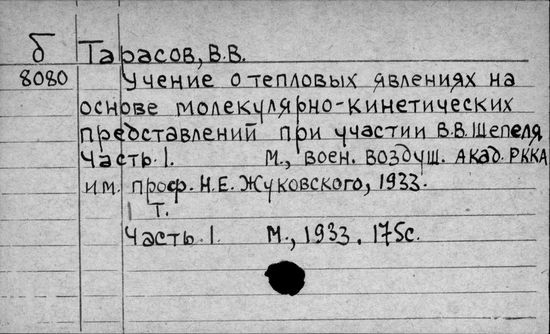 б Тарасов, В.В.
8080 Учение о тепловых явлениях на
основе молекулярно-кинетических
представлений при участии В.В. Шепеля
Часть 1. М., воен. воздуш. акад. РККА
им. проф. Н.Е. Жуковского, 1933.
1 т.
Часть 1. М., 1933. 175с.